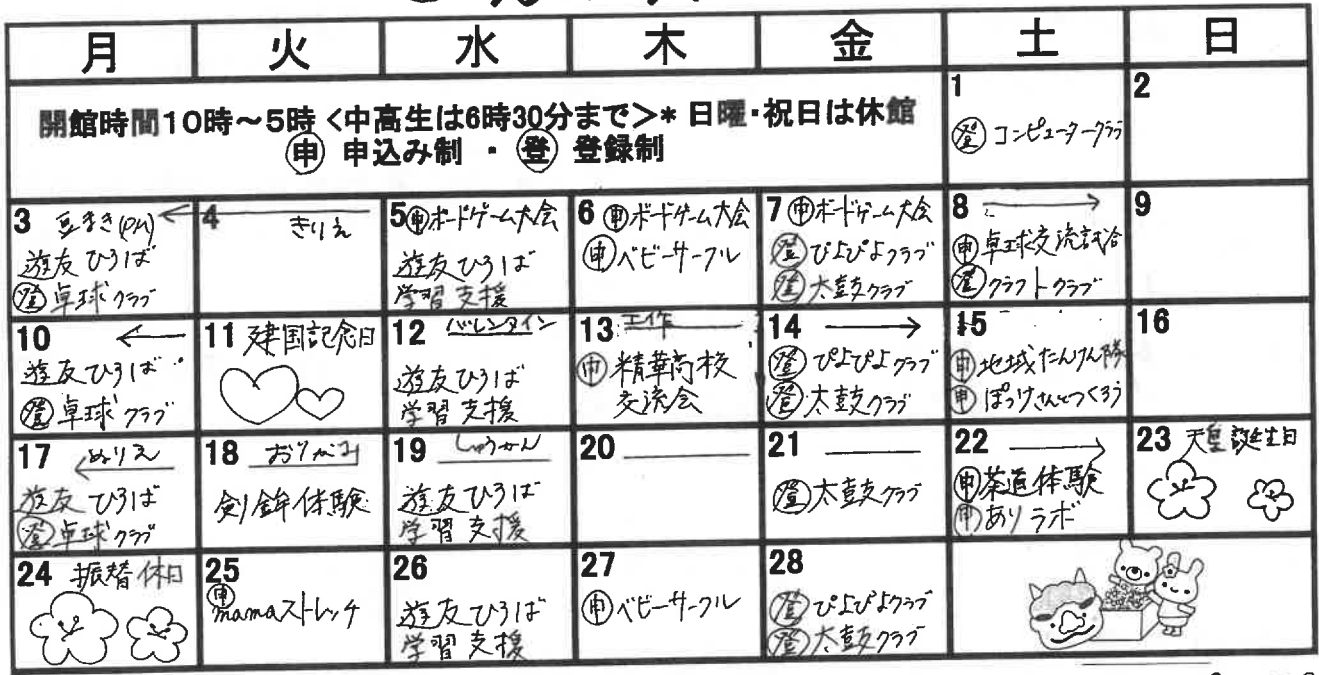 月 火 水 木 金 土 日
開館時間10時～5時<中高生は6時30分まで>*日曜・祝日は休館
㊥ 申込み制 ・ 登 登録制
1
登 コンピュータークラブ
2
3 豆まき(PM)
遊友ひろば
登 卓球クラブ
4 きりえ
5 申 ボードゲーム大会
遊友ひろば
学習支援
6 申 ボードゲーム大会
申 ベビーサークル
7 申 ボードゲーム大会
登 ぴよぴよクラブ
登 太鼓クラブ
8
申 卓球交流試合
登 クラフトクラブ
9
10
遊友ひろば
登 卓球クラブ
11 建国記念日
12 バレンタイン
遊友ひろば
学習支援
13 工作
申 精華高校
交流会
14
登 ぴよぴよクラブ
登 太鼓クラブ
15
申 地域たんけん隊
申 ぼうけさんとつくろう
16
17 ぬりえ
遊友ひろば
登 卓球クラブ
18 おりがみ
剣鉾体験
19 しゅうかん
遊友ひろば
学習支援
20
21
登 太鼓クラブ
22
申 茶道体験
申 ありラボ
23 天皇誕生日
24 振替休日
25
申 mamaストレッチ
26
遊友ひろば
学習支援
27
申 ベビーサークル
28
登 ぴよぴよクラブ
登 太鼓クラブ